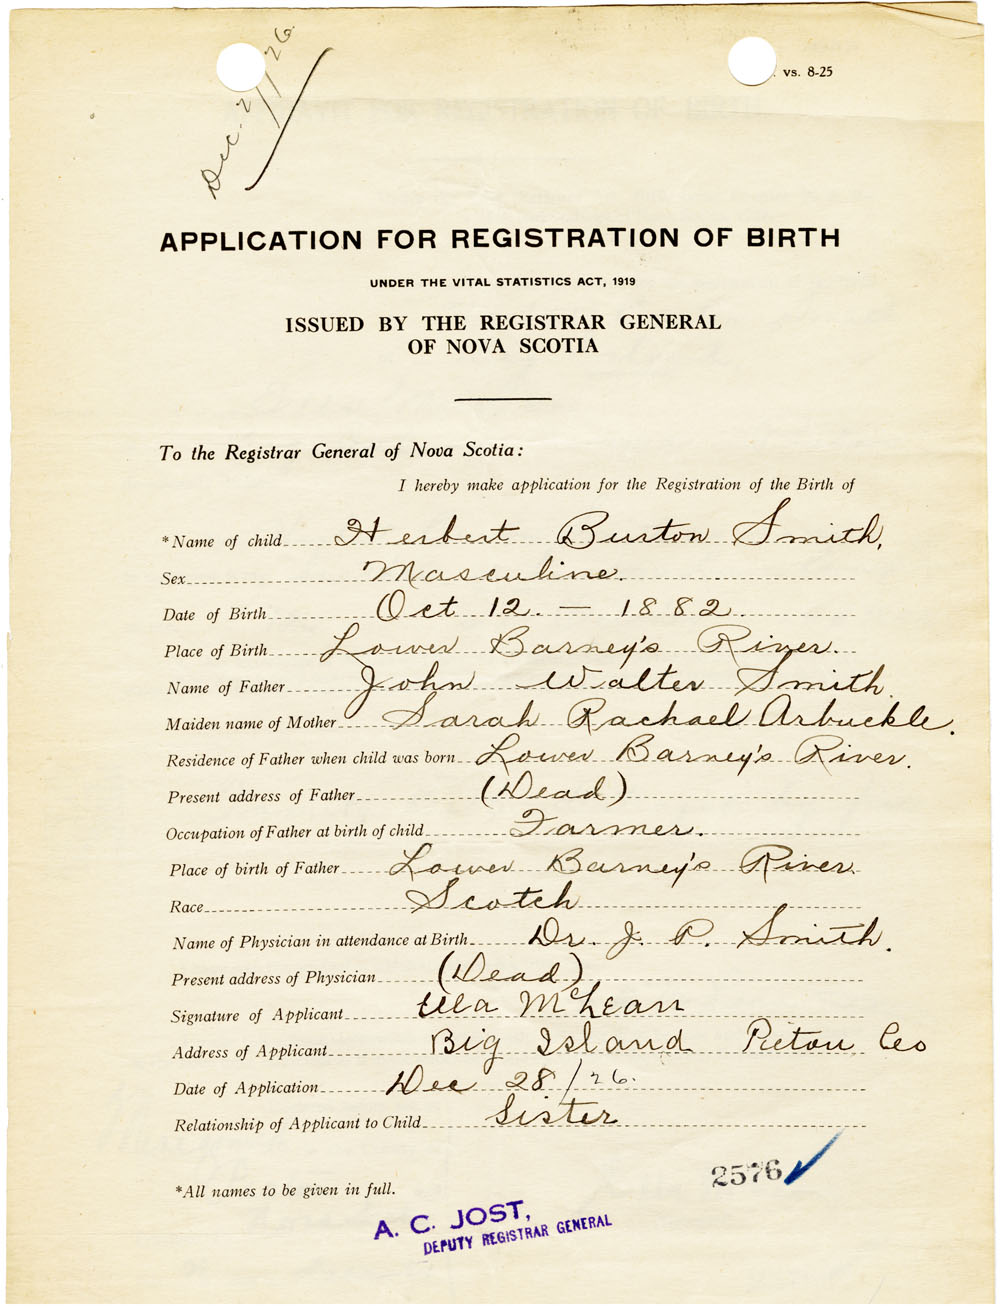 Dec. 2 / 26
vs. 8-25
APPLICATION FOR REGISTRATION OF BIRTH
UNDER THE VITAL STATISTICS ACT, 1919
ISSUED BY THE REGISTRAR GENERAL
OF NOVA SCOTIA
To the Registrar General of Nova Scotia:
I hereby make application for the Registration of the Birth of
*Name of child Herbert Burton Smith,
Sex Masculine.
Date of Birth Oct 12. — 1882.
Place of Birth Lower Barney's River.
Name of Father John Walter Smith.
Maiden name of Mother Sarah Rachael Arbuckle.
Residence of Father when child was born Lower Barney's River.
Present address of Father (Dead)
Occupation of Father at birth of child Farmer.
Place of birth of Father Lower Barney's River.
Race Scotch
Name of Physician in attendance at Birth Dr. J. P. Smith.
Present address of Physician (Dead)
Signature of Applicant McLean
Address of Applicant Big Island Pictou Co
Date of Application Dec 28/26.
Relationship of Applicant to Child Sister
2576
*All names to be given in full.
A. C. JOST,
DEPUTY REGISTRAR GENERAL